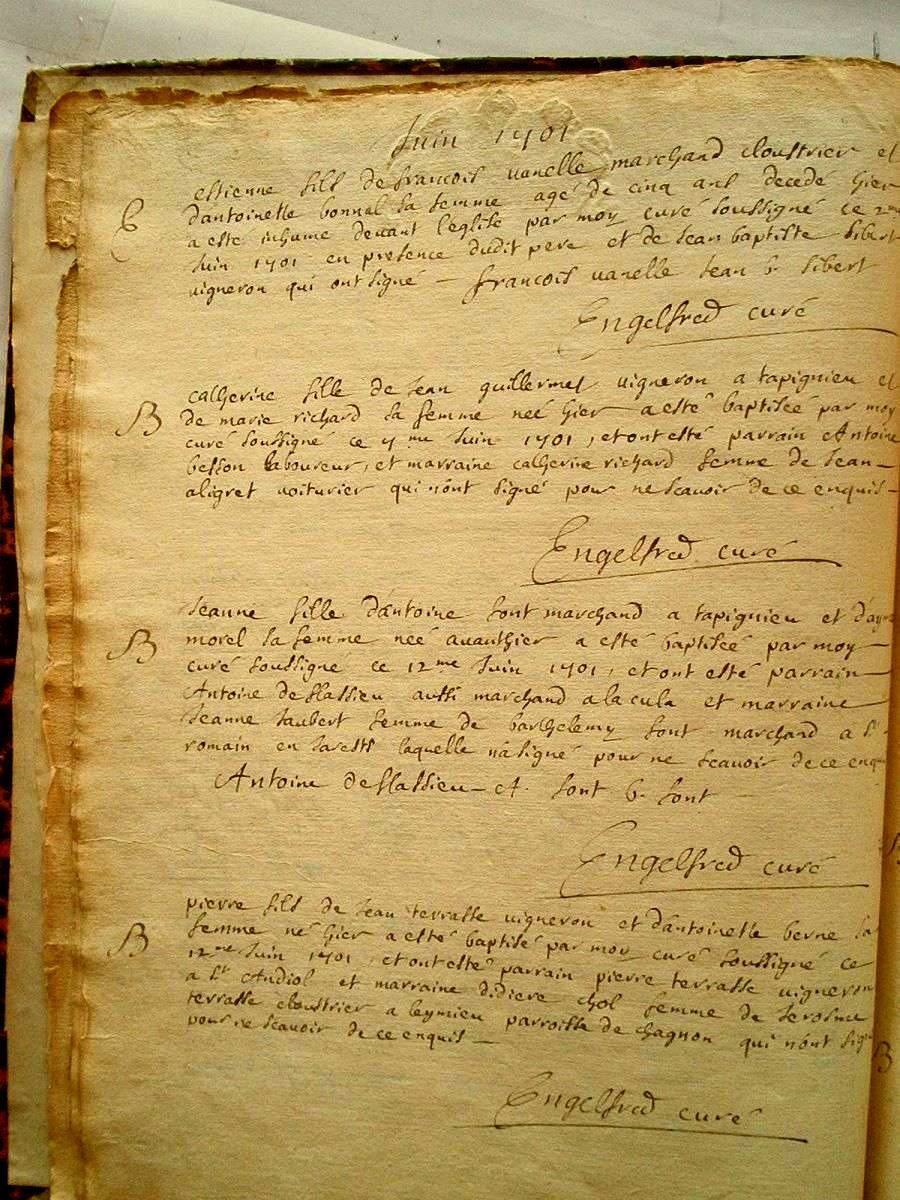 Juin 1701
E
estienne fils de francois vanelle marchand cloustrier et
d'antoinette bonnal sa femme agé de cinq ans decedé hier
a esté inhumé devant l'eglise par moy curé soussigné ce 2me
Juin 1701 en presence dudit pere et de Jean baptiste sibert
vigneron qui ont signé — francois vanelle Jean b. sibert
Engelfred curé
B
catherine fille de Jean guillermet vigneron a tapignieu et
de marie richard sa femme neé hier a esté baptiseé par moy
curé soussigné ce 7me Juin 1701, et ont esté parrain Antoine
besson laboureur, et marraine catherine richard femme de Jean —
aligret voiturier qui n'ont signé pour ne scavoir de ce enquis —
Engelfred curé
B
Jeanne fille d'antoine font marchand a tapignieu et
morel sa femme neé avanthier a esté baptiseé par moy —
curé soussigné ce 12me Juin 1701, et ont esté parrain —
Antoine deflassieu aussi marchand a la cula et marraine
Jeanne Jaubert femme de barthelemy font marchand a st
romain en Jarests laquelle n'a signé pour ne scavoir de ce enquis
Antoine deflassieu — A. font b. font
Engelfred curé
B
pierre fils de Jean terrasse vigneron et d'antoinette berne sa
femme né hier a esté baptisé par moy curé soussigné ce
12me Juin 1701, et ont esté parrain pierre terrasse vigneron
a st Andiol et marraine didiere chol femme de Jerosme
terrasse cloustrier a leymieu parroisse de chagnon qui n'ont signé
pour ne scavoir de ce enquis —
Engelfred curé
B